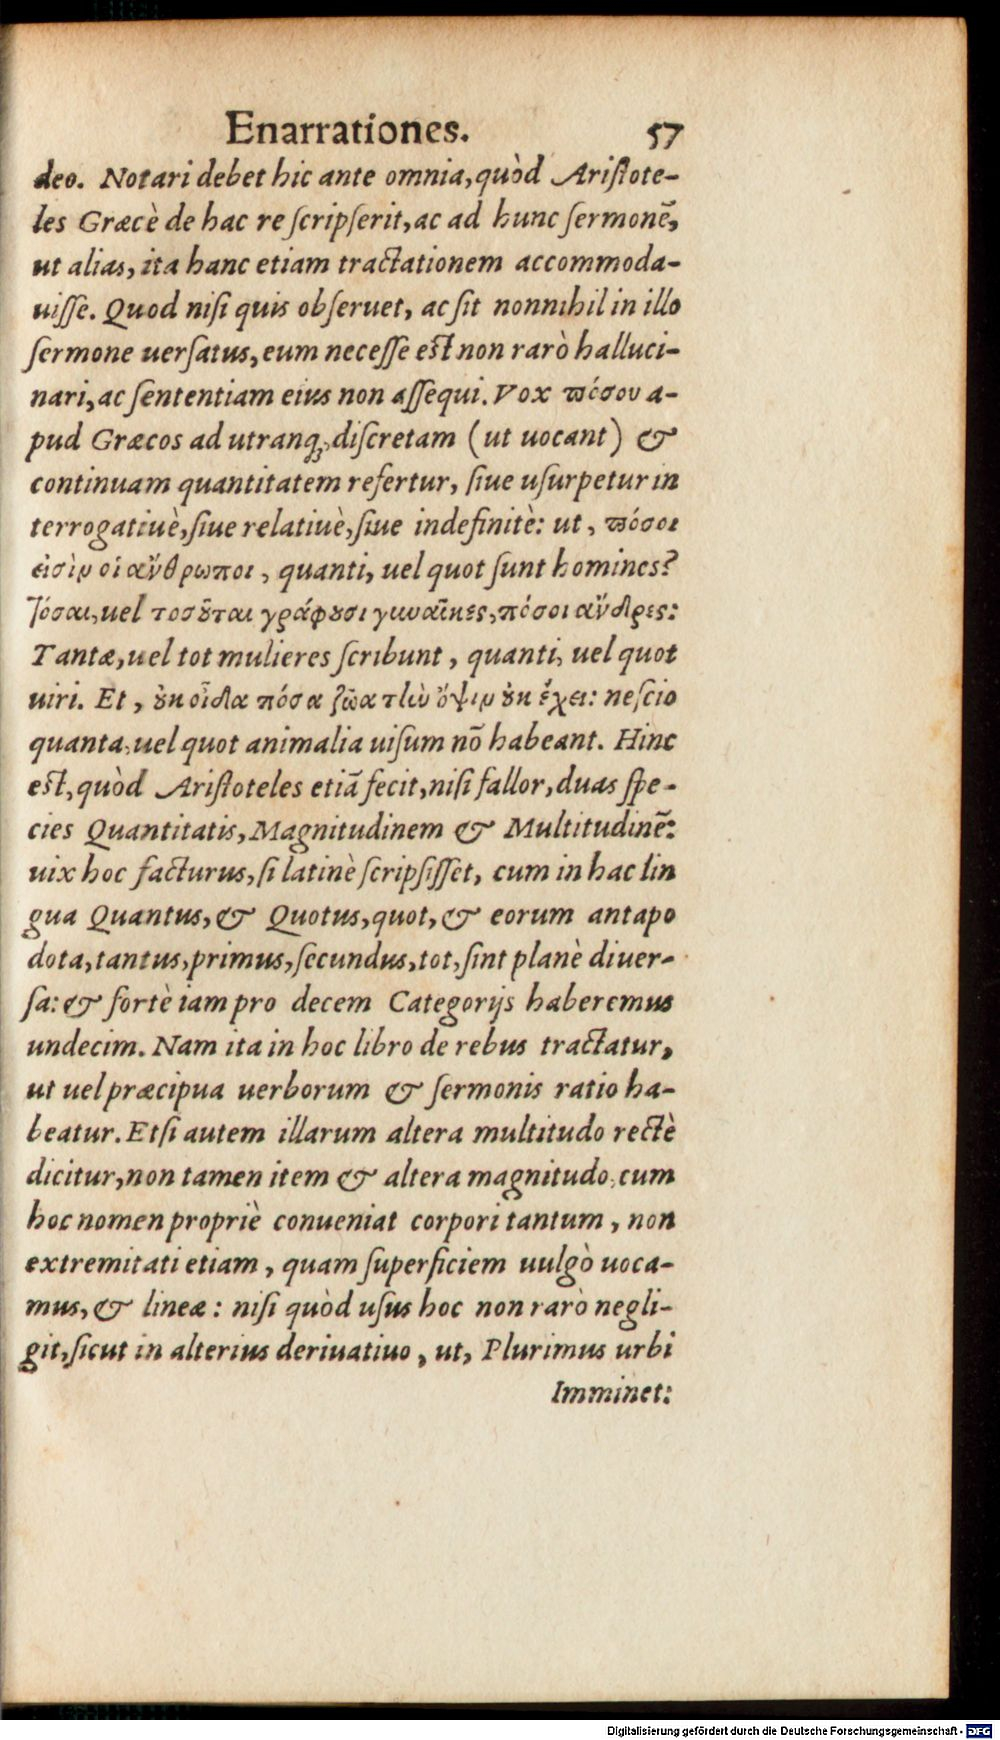 Enarrationes. 57
deo. Notari debet hic ante omnia, quòd Aristote-
les Græcè de hac re scripserit, ac ad hunc sermonē,
ut alias, ita hanc etiam tractationem accommoda-
uisse. Quod nisi quis obseruet, ac sit nonnihil in illo
sermone uersatus, eum necesse est non rarò halluci-
nari, ac sententiam eius non assequi. Vox πόσου a-
pud Græcos ad utranq;, discretam (ut uocant) &
continuam quantitatem refertur, siue usurpetur in
terrogatiuè, siue relatiuè, siue indefinitè: ut, πόσοι
εἰσὶν οἱ ἄνθρωποι, quanti, uel quot sunt homines?
Τόσαι, uel τοσοῦται γράφουσι γυναῖκες, πόσοι ἄνδρες:
Tantæ, uel tot mulieres scribunt, quanti, uel quot
uiri. Et, οὐκ οἶδα πόσα ζῶα τὴν ὄψιν οὐκ ἔχει: nescio
quanta, uel quot animalia uisum nō habeant. Hinc
est, quòd Aristoteles etiā fecit, nisi fallor, duas spe-
cies Quantitatis, Magnitudinem & Multitudinē:
uix hoc facturus, si latinè scripsisset, cum in hac lin
gua Quantus, & Quotus, quot, & eorum antapo
dota, tantus, primus, secundus, tot, sint planè diuer-
sa: & fortè iam pro decem Categorijs haberemus
undecim. Nam ita in hoc libro de rebus tractatur,
ut uel præcipua uerborum & sermonis ratio ha-
beatur. Etsi autem illarum altera multitudo rectè
dicitur, non tamen item & altera magnitudo, cum
hoc nomen propriè conueniat corpori tantum, non
extremitati etiam, quam superficiem uulgò uoca-
mus, & lineæ: nisi quòd usus hoc non rarò negli-
git, sicut in alterius deriuatiuo, ut, Plurimus urbi
Imminet:
Digitalisierung gefördert durch die Deutsche Forschungsgemeinschaft - DFG